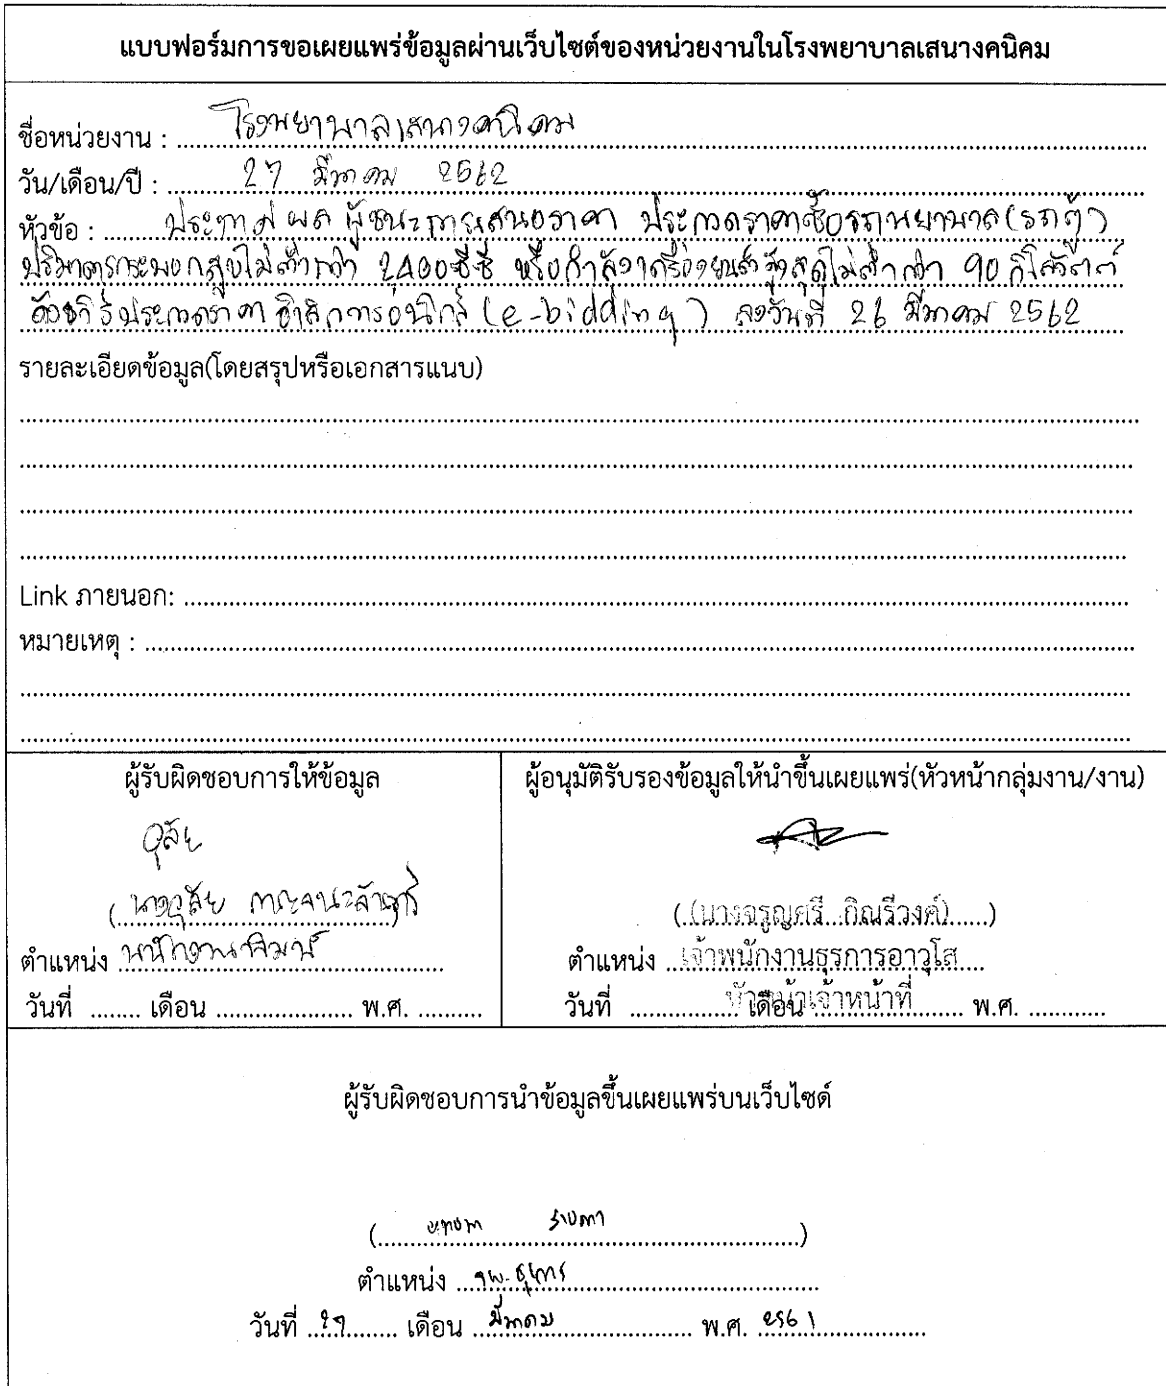 แบบฟอร์มการขอเผยแพร่ข้อมูลผ่านเว็บไซต์ของหน่วยงานในโรงพยาบาลเสนางคนิคม
ชื่อหน่วยงาน : โรงพยาบาลเสนางคนิคม
วัน/เดือน/ปี : 27 มีนาคม 2562
หัวข้อ : ประกาศ ผล ผู้ชนะการเสนอราคา ประกวดราคาซื้อรถพยาบาล(รถตู้)
ปริมาตรกระบอกสูบไม่ต่ำกว่า 2400 ซีซี หรือกำลังเครื่องยนต์สูงสุดไม่ต่ำกว่า 90 กิโลวัตต์
ด้วยวิธีประกวดราคาอิเล็กทรอนิกส์ (e-bidding) ลงวันที่ 26 มีนาคม 2562
รายละเอียดข้อมูล(โดยสรุปหรือเอกสารแนบ)
Link ภายนอก:
หมายเหตุ :
ผู้รับผิดชอบการให้ข้อมูล
อุลัย
(นางอุลัย)
ตำแหน่ง พนักงานพิมพ์
วันที่ ........ เดือน .................... พ.ศ. ..........
ผู้อนุมัติรับรองข้อมูลให้นำขึ้นเผยแพร่(หัวหน้ากลุ่มงาน/งาน)
(นางจรูญศรี กิณรีวงค์)
ตำแหน่ง เจ้าพนักงานธุรการอาวุโส
หัวหน้าเจ้าหน้าที่
วันที่ ................ เดือน .................... พ.ศ. ............
ผู้รับผิดชอบการนำข้อมูลขึ้นเผยแพร่บนเว็บไซด์
ตำแหน่ง จพ.ธุรการ
วันที่ 27 เดือน มีนาคม พ.ศ. 2561